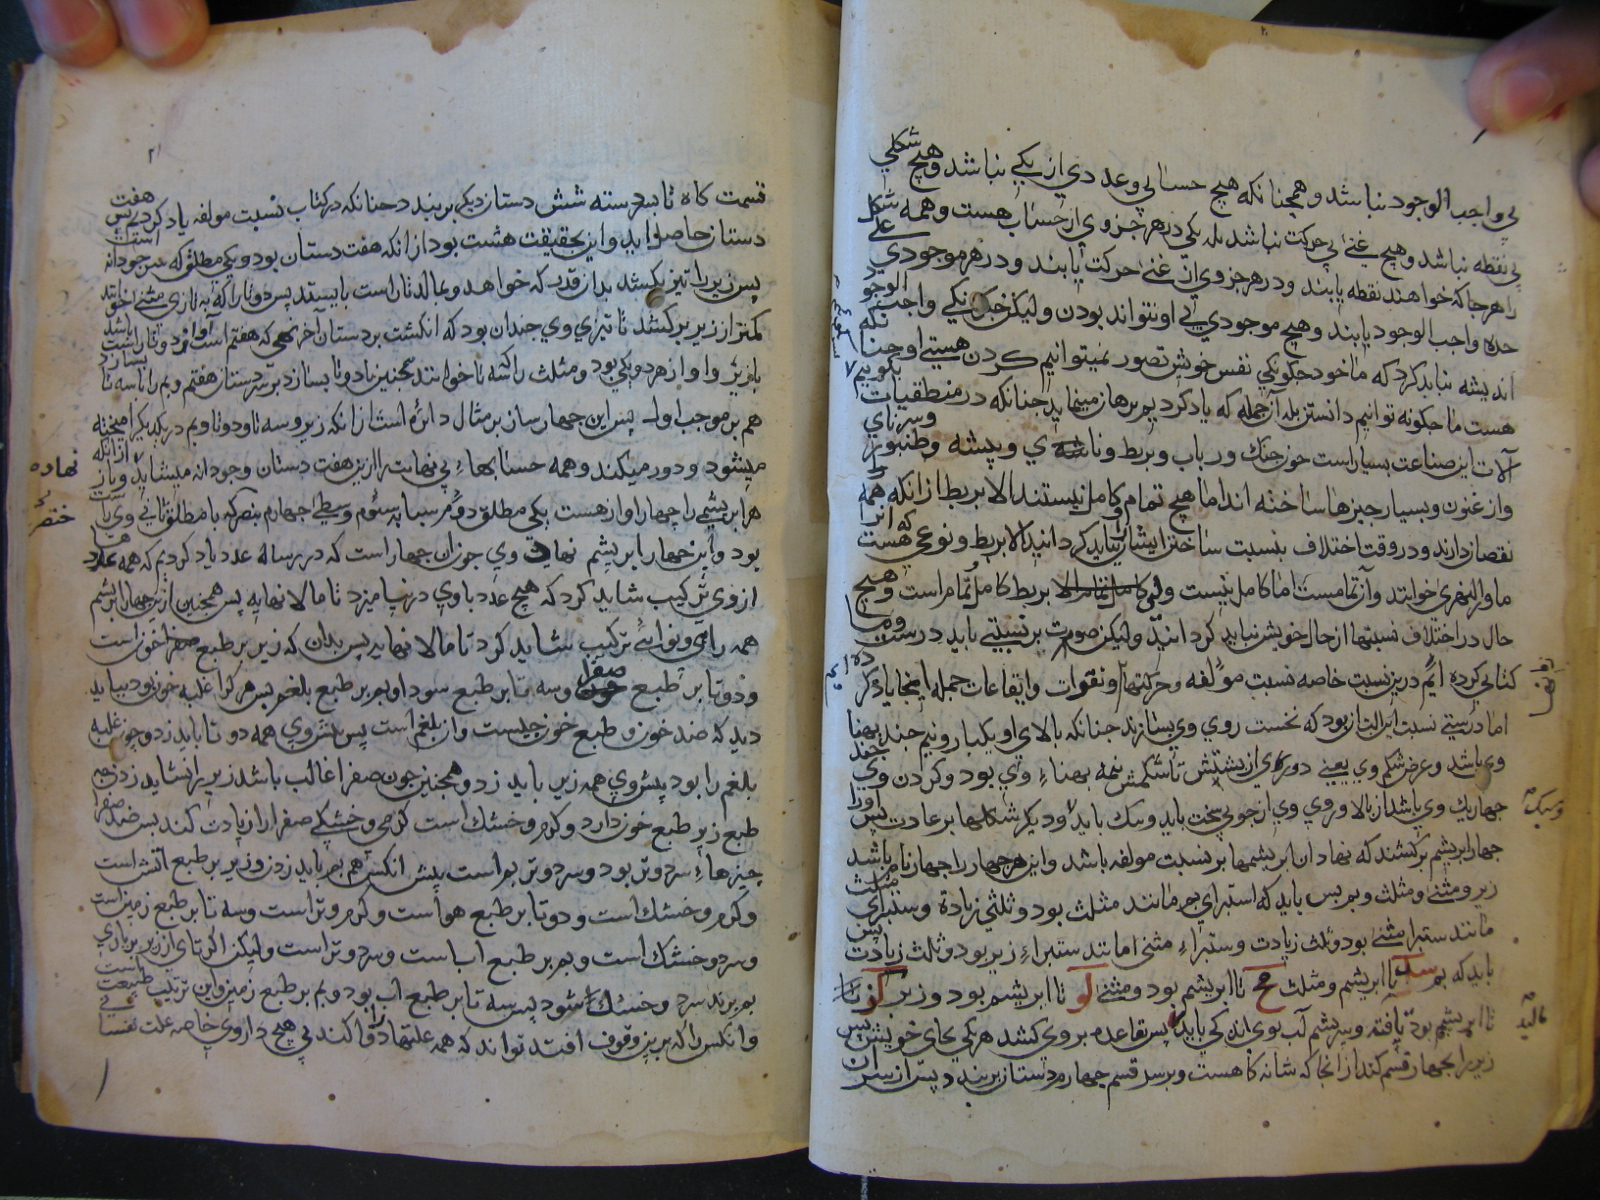 بی واجب الوجود نباشد و همچنانکه هیچ حسابی و عددی از یکی نباشد و هیچ شکلی
بی نقطه نباشد و هیچ غنی بی حرکت نباشد بلکه یکی در هر جزوی از حساب هست و همه شکل
را هرجا که خواهند نقطه یابند و در هر جزوی از غنی حرکت یابند و در هر موجودی علی
حده واجب الوجود یابند و هیچ موجودی بی او نتواند بودن ولیکن یکی واجب الوجود
اندیشه نباید کرد که ما خود چگونگی نفس خوش تصور نمیتوانیم کردن هستی او چنانکه
هست ما چگونه توانیم دانستن بلکه ازجمله که یاد کردیم برهان مینماید چنانکه در منطقیات بگوییم
آلات این صناعت بسیار است چون چنک و رباب و بربط و نای و پیشه و طنبور و سرنای
و ارغنون و بسیار چیزها ساخته اند اما هیچ تمام و کامل نیستند الا بربط از انکه همه
نقصان دارند و در وقت اختلاف بنسبت ساختن ایشان نباید کردانید الا بربط و نوعی هست که انرا
ماورالنهری خوانند و آن تمامست اما کامل نیست ولی بربط کامل تمام است و هیچ
حال در اختلاف نسبتها از حال خویش نباید کردانید ولیکن صورت بر نسبتی باید درست و ما
کتابی کرده ایم درین نسبت خاصه نسبت مؤلفه و حرکتها و نقرات و ایقاعات جمله اینجا یاد کرده
اما درستی نسبت این الت از بود که نخست روی وی بسازند چنانکه بالای او یکبار و نیم چند پهنا
وی باشد و عرض شکم وی یعنی دوری از پشتش تا شکمش نیمه پهناء وی بود و کردن وی چند
چهاریک وی باشد از بالا و روی وی از چوبی سخت باید و سبک باید و دیگر شکلها بر عادت پس اورا
چهار ابریشم برکشند که نهاد ان ابریشمها بر نسبت مولفه باشد و این هر چهار را چهار نام باشد
زیر و مثنی و مثلث و بم پس باید که استبرای بم مانند مثلث بود و ثلثی زیادة و ستبرای مثلث
مانند ستبراء مثنی بود و ثلث زیادت و ستبراء مثنی مانند ستبراء زیر بود و ثلث زیادت پس
باید که بم سد تا ابریشم و مثلث مح تا ابریشم بود و مثنی لو تا ابریشم بود و زیر کز تا
تا ابریشم بود بافته و سریشم آب بوی اندکی باید پس بقاعده بر وی کشند هر یکی بجای خویش پس
زیر را بچهار قسم کنند از انجا که شانه کاه است و بر سر قسم چهارم دستان بربندد و پس از سر ان
قسمت کاه تا بسر دسته شش دستان دیگر بربندد چنانکه در کتاب نسبت مولفه یاد کردیم پس هفت
دستان حاصل آید و این بحقیقت هشت بود از انکه هفت دستان بود و یکی مطلق که
پس زیر را تیز بکشند بدان قدر که خواهد و بمالد تا راست بایستد پس دو تا را که به تازی مثنی خوانند
کمتر از زیر برکشد تا تیزی وی چندان بود که انکشت بر دستان آخر نهی که هفتم است آواز دو تا راست باشد
با زیر و اواز هر دو یکی بود و مثلث را که سه تا خوانند همچنین با دو تا بسازد بر سر دستان هفتم و بم را با سه تا بسازد
هم بر موجب اول پس این چهار ساز بر مثال دائره است از انکه زیر و سه تا و دو تا و بم در یکدیگر امیخته
میشود و دور میکند و همه حسابهاء بی نهایت را ازین هفت دستان وجود انه میشاید و باز از انکه
هر ابریشمی را چهار اواز هست یکی مطلق دوم سبابه سئوم وسطی چهارم بنصر که با مطلق ثانی وی راست
بود و این چهار ابریشم نهاد وی چون ان چهار است که در رساله عدد یاد کردیم که همه عددها
از وی ترکیب شاید کرد که هیچ عدد با وی درنیامیزد تا مالا نهایه پس همچنین ازین چهار ابریشم
همه راهی و نوائی ترکیب شاید کرد تا مالا نهایه پس بدان که زیر بر طبع صفراء خون است
و دو تا بر طبع صفرا و سه تا بر طبع سودا و بم بر طبع بلغم پس هر کرا غلبه خون بود بباید
دید که ضد خون و طبع خون چیست و ان بلغم است پس پیش وی همه دو تا باید زد و چون غلبه
بلغم را بود پیش وی همه زیر باید زد و همچنین چون صفرا غالب باشد زیر را نشاید زدن بم
طبع زیر طبع خون دارد و کرم و خشک است کرمی و خشکی صفرا را زیادت کند پس ضد صفرا
چیزهاء سرد و تر بود و سرد و تر بم است پیش انکس هم بم باید زدن و زیر بر طبع آتش است
و کرم و خشک است و دو تا بر طبع هوا است و کرم و تر است و سه تا بر طبع زمین است
و سرد و خشک است و بم بر طبع اب است و سرد و تر است ولیکن اکر تای از زیر بر بای
بم برند سرد و خشک شود پس سه تا بر طبع اب بود و بم بر طبع زمین و این ترتیب طبیعت است
و انکس را که برین وقوف افتد تواند که همه علتها را دوا کند بی هیچ داروی خاصه علت نفسانی
نهاده
خنصر